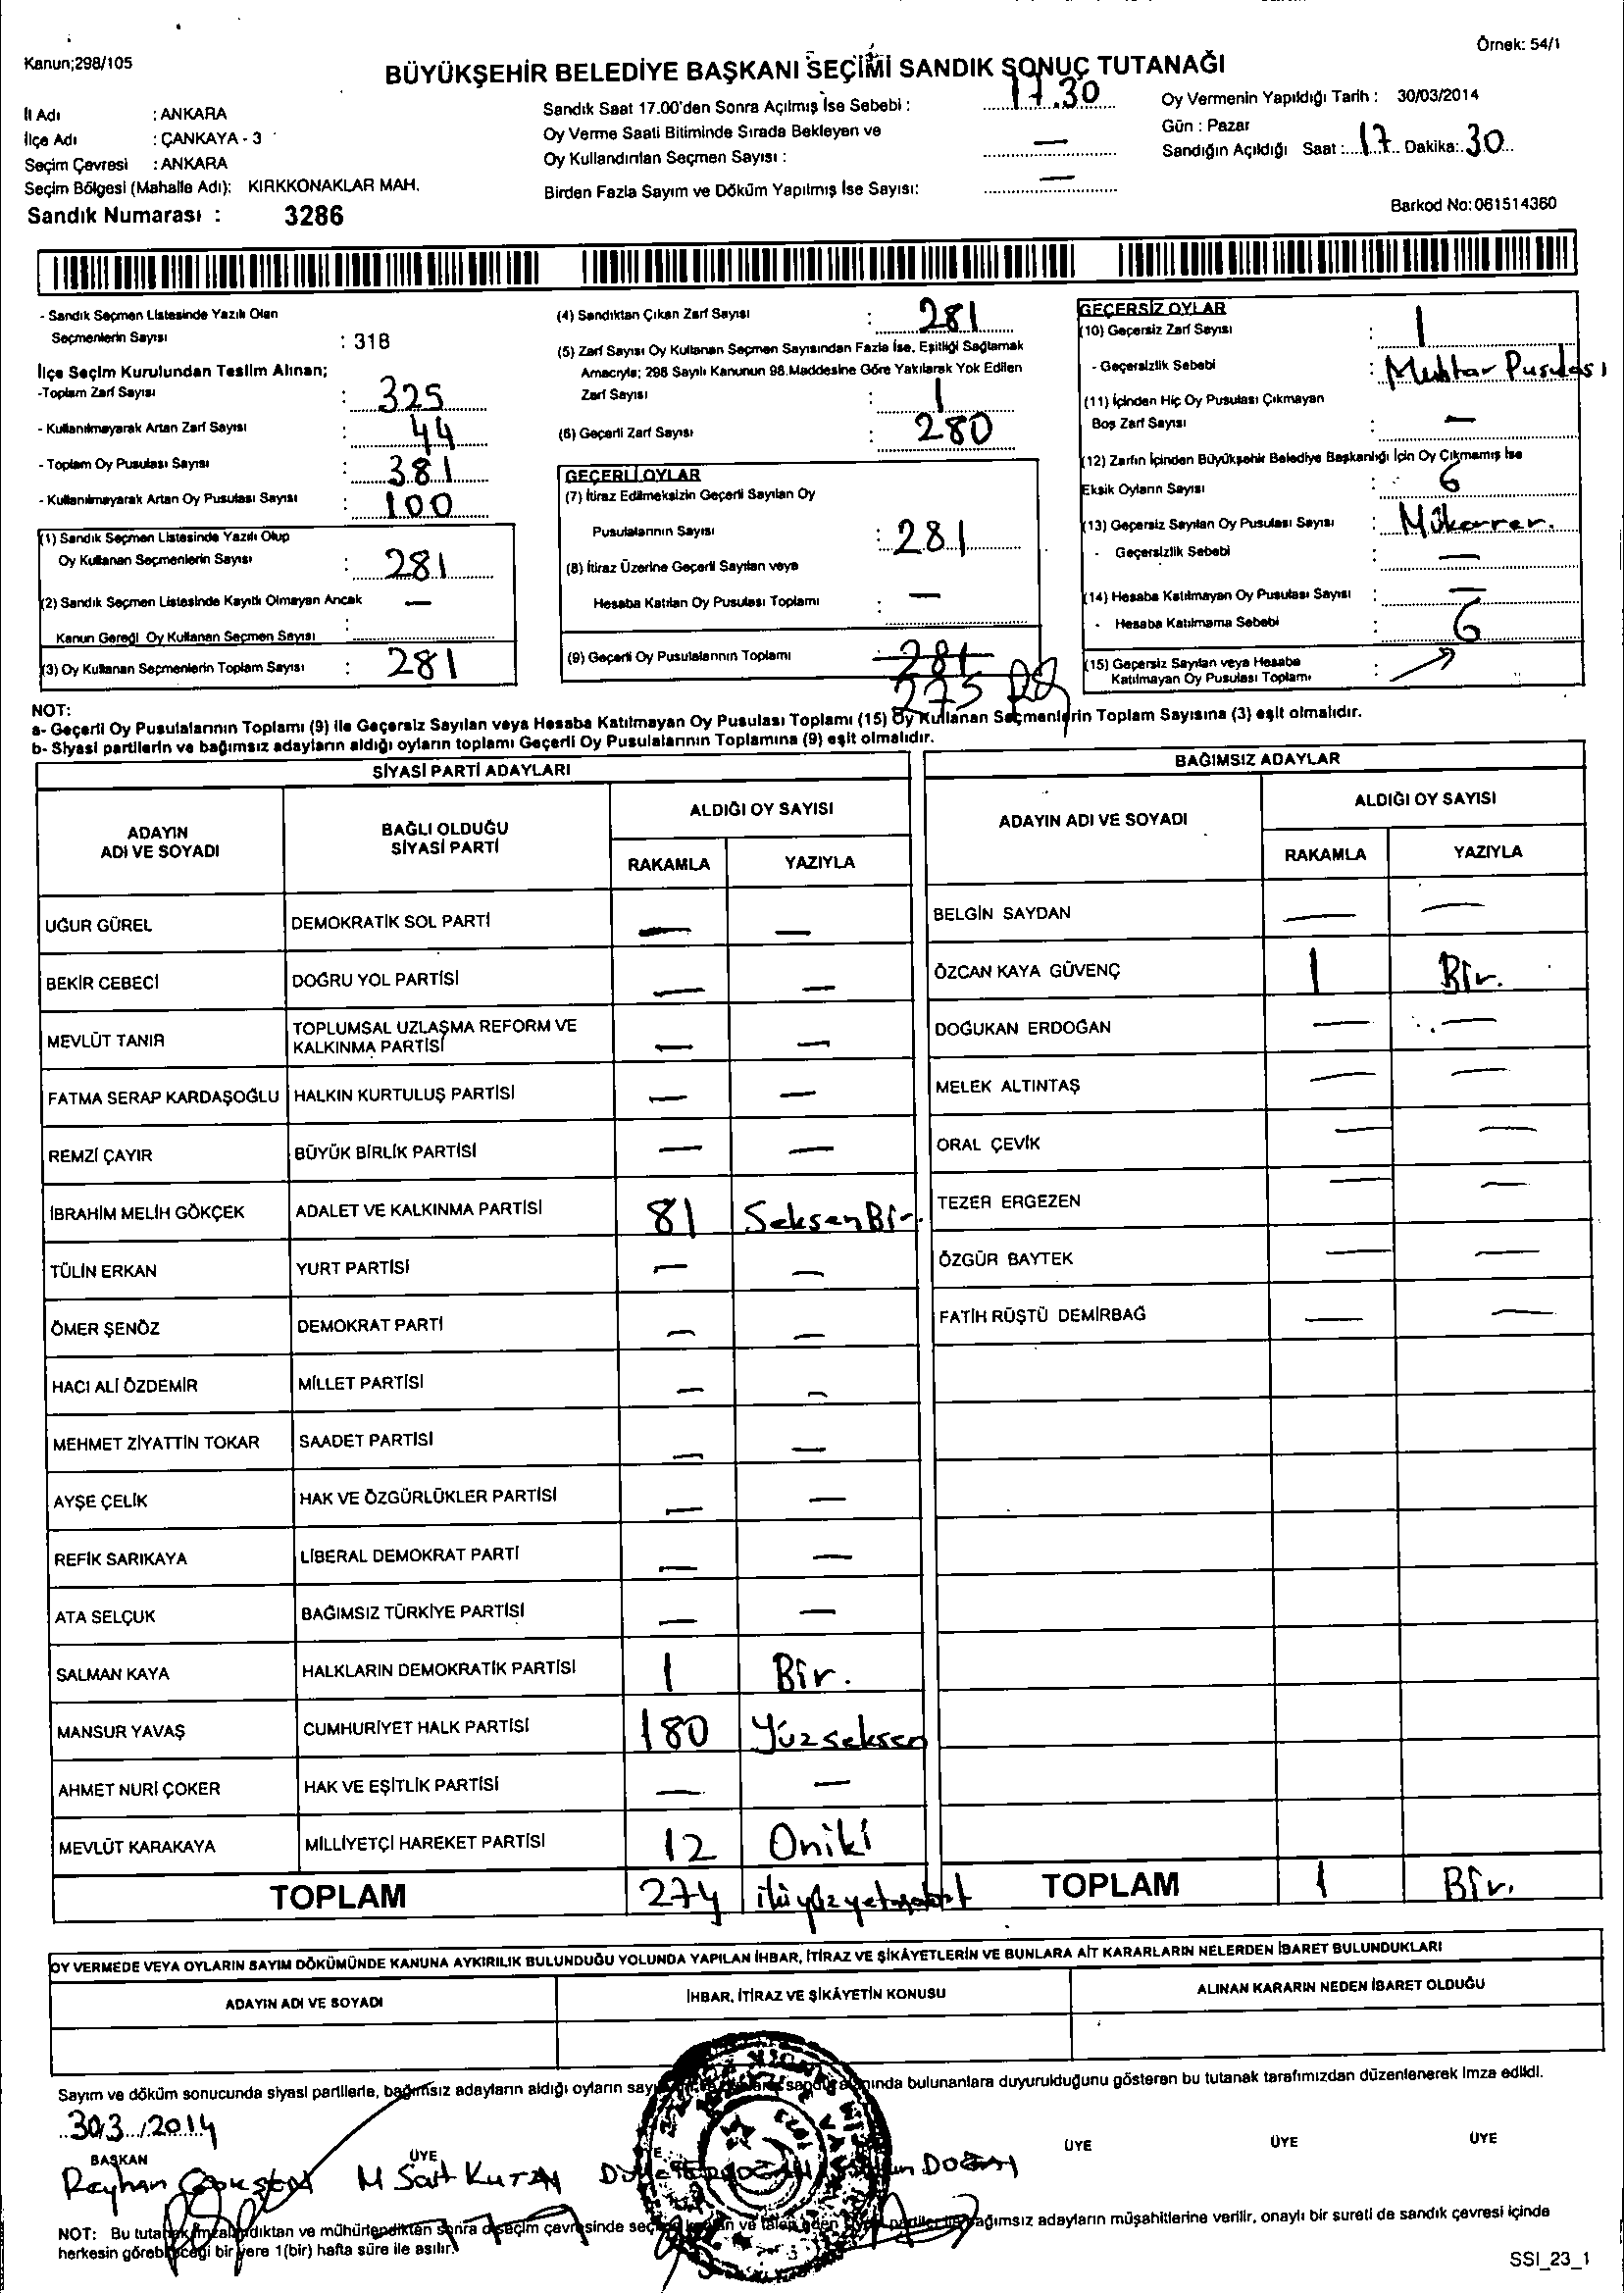 Kanun;298/105
Örnek: 54/1
BÜYÜKŞEHİR BELEDİYE BAŞKANI SEÇİMİ SANDIK SONUÇ TUTANAĞI
İl Adı : ANKARA
İlçe Adı : ÇANKAYA - 3
Seçim Çevresi : ANKARA
Seçim Bölgesi (Mahalle Adı): KIRKKONAKLAR MAH.
Sandık Numarası : 3286
Sandık Saat 17.00'den Sonra Açılmış İse Sebebi : 17.30
Oy Verme Saati Bitiminde Sırada Bekleyen ve
Oy Kullandırılan Seçmen Sayısı : —
Birden Fazla Sayım ve Döküm Yapılmış İse Sayısı: —
Oy Vermenin Yapıldığı Tarih : 30/03/2014
Gün : Pazar
Sandığın Açıldığı Saat : 17 Dakika: 30
Barkod No: 061514360
- Sandık Seçmen Listesinde Yazılı Olan
Seçmenlerin Sayısı : 318
İlçe Seçim Kurulundan Teslim Alınan;
-Toplam Zarf Sayısı : 325
- Kullanılmayarak Artan Zarf Sayısı : 44
- Toplam Oy Pusulası Sayısı : 381
- Kullanılmayarak Artan Oy Pusulası Sayısı : 100
(1) Sandık Seçmen Listesinde Yazılı Olup
Oy Kullanan Seçmenlerin Sayısı : 281
(2) Sandık Seçmen Listesinde Kayıtlı Olmayan Ancak —
Kanun Gereği Oy Kullanan Seçmen Sayısı :
(3) Oy Kullanan Seçmenlerin Toplam Sayısı : 281
(4) Sandıktan Çıkan Zarf Sayısı : 281
(5) Zarf Sayısı Oy Kullanan Seçmen Sayısından Fazla İse, Eşitliği Sağlamak
Amacıyla; 298 Sayılı Kanunun 98.Maddesine Göre Yakılarak Yok Edilen
Zarf Sayısı : 1
(6) Geçerli Zarf Sayısı : 280
GEÇERLİ OYLAR
(7) İtiraz Edilmeksizin Geçerli Sayılan Oy
Pusulalarının Sayısı : 281
(8) İtiraz Üzerine Geçerli Sayılan veya
Hesaba Katılan Oy Pusulası Toplamı : —
(9) Geçerli Oy Pusulalarının Toplamı 281
275
GEÇERSİZ OYLAR
(10) Geçersiz Zarf Sayısı : 1
- Geçersizlik Sebebi : Muhtar Pusulası
(11) İçinden Hiç Oy Pusulası Çıkmayan
Boş Zarf Sayısı : —
(12) Zarfın İçinden Büyükşehir Belediye Başkanlığı İçin Oy Çıkmamış İse
Eksik Oyların Sayısı : 6
(13) Geçersiz Sayılan Oy Pusulası Sayısı : Mükerrer.
- Geçersizlik Sebebi : —
(14) Hesaba Katılmayan Oy Pusulası Sayısı : —
- Hesaba Katılmama Sebebi : 6
(15) Geçersiz Sayılan veya Hesaba
Katılmayan Oy Pusulası Toplamı :
NOT:
a- Geçerli Oy Pusulalarının Toplamı (9) ile Geçersiz Sayılan veya Hesaba Katılmayan Oy Pusulası Toplamı (15) Oy Kullanan Seçmenlerin Toplam Sayısına (3) eşit olmalıdır.
b- Siyasi partilerin ve bağımsız adayların aldığı oyların toplamı Geçerli Oy Pusulalarının Toplamına (9) eşit olmalıdır.
SİYASİ PARTİ ADAYLARI
ADAYIN ADI VE SOYADI BAĞLI OLDUĞU SİYASİ PARTİ ALDIĞI OY SAYISI
RAKAMLA YAZIYLA
UĞUR GÜREL DEMOKRATİK SOL PARTİ — —
BEKİR CEBECİ DOĞRU YOL PARTİSİ — —
MEVLÜT TANIR TOPLUMSAL UZLAŞMA REFORM VE KALKINMA PARTİSİ — —
FATMA SERAP KARDAŞOĞLU HALKIN KURTULUŞ PARTİSİ — —
REMZİ ÇAYIR BÜYÜK BİRLİK PARTİSİ — —
İBRAHİM MELİH GÖKÇEK ADALET VE KALKINMA PARTİSİ 81 SeksenBir.
TÜLİN ERKAN YURT PARTİSİ — —
ÖMER ŞENÖZ DEMOKRAT PARTİ — —
HACI ALİ ÖZDEMİR MİLLET PARTİSİ — —
MEHMET ZİYATTİN TOKAR SAADET PARTİSİ — —
AYŞE ÇELİK HAK VE ÖZGÜRLÜKLER PARTİSİ — —
REFİK SARIKAYA LİBERAL DEMOKRAT PARTİ — —
ATA SELÇUK BAĞIMSIZ TÜRKİYE PARTİSİ — —
SALMAN KAYA HALKLARIN DEMOKRATİK PARTİSİ 1 Bir.
MANSUR YAVAŞ CUMHURİYET HALK PARTİSİ 180 Yüzseksen
AHMET NURİ ÇOKER HAK VE EŞİTLİK PARTİSİ — —
MEVLÜT KARAKAYA MİLLİYETÇİ HAREKET PARTİSİ 12 Oniki
TOPLAM 274
BAĞIMSIZ ADAYLAR
ADAYIN ADI VE SOYADI ALDIĞI OY SAYISI
RAKAMLA YAZIYLA
BELGİN SAYDAN — —
ÖZCAN KAYA GÜVENÇ 1 Bir.
DOĞUKAN ERDOĞAN — —
MELEK ALTINTAŞ — —
ORAL ÇEVİK — —
TEZER ERGEZEN — —
ÖZGÜR BAYTEK — —
FATİH RÜŞTÜ DEMİRBAĞ — —
TOPLAM 1 Bir.
OY VERMEDE VEYA OYLARIN SAYIM DÖKÜMÜNDE KANUNA AYKIRILIK BULUNDUĞU YOLUNDA YAPILAN İHBAR, İTİRAZ VE ŞİKÂYETLERİN VE BUNLARA AİT KARARLARIN NELERDEN İBARET BULUNDUKLARI
ADAYIN ADI VE SOYADI İHBAR, İTİRAZ VE ŞİKÂYETİN KONUSU ALINAN KARARIN NEDEN İBARET OLDUĞU
Sayım ve döküm sonucunda siyasi partilerle, bağımsız adayların aldığı oyların bulunanlara duyurulduğunu gösteren bu tutanak tarafımızdan düzenlenerek imza edildi.
30/3/2014
BAŞKAN ÜYE ÜYE ÜYE ÜYE
Reyhan M Sait DOĞAN
NOT: Bu tutanak imzalandıktan ve mühürlendikten sonra o seçim çevresinde bağımsız adayların müşahitlerine verilir, onaylı bir sureti de sandık çevresi içinde
herkesin görebileceği bir yere 1(bir) hafta süre ile asılır.
SSI_23_1